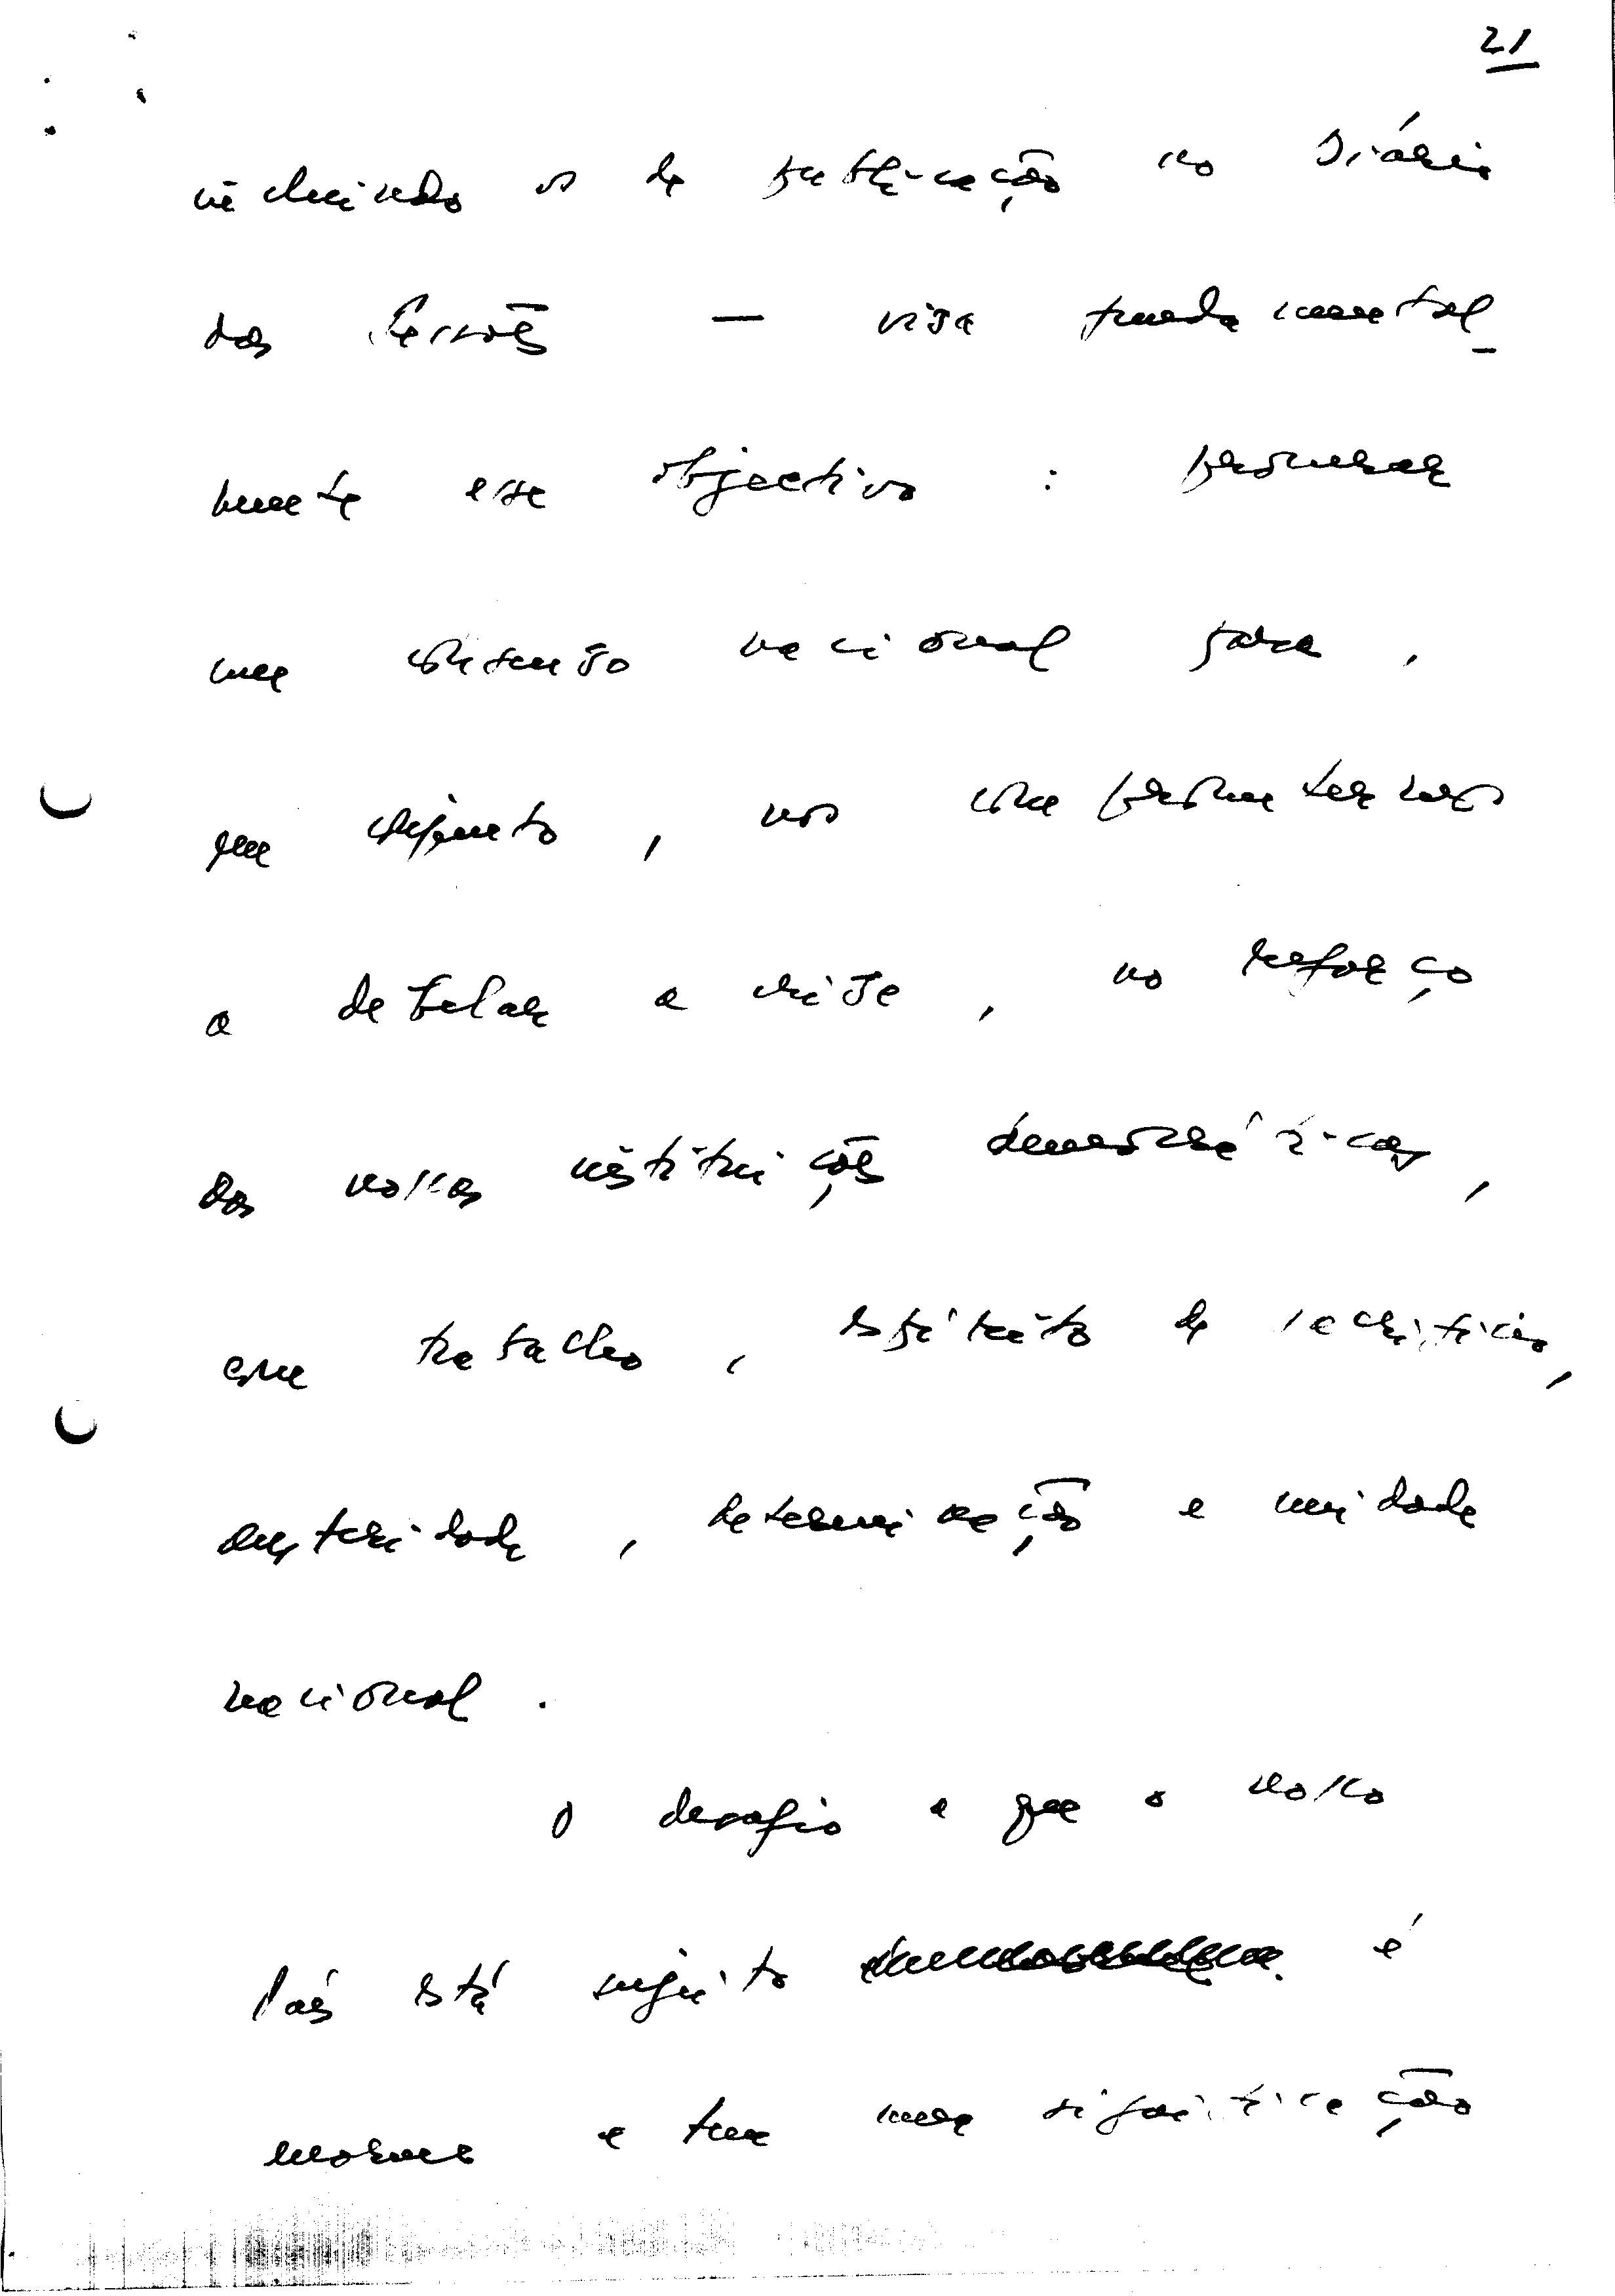 21
incluindo os de publicação no Diário
das Sessões — visa fundamental-
mente esse objectivo : promover
um consenso nacional para,
em conjunto, nos comprometermos
a debelar a crise, no reforço
das nossas instituições democráticas,
com trabalho, espírito de sacrifício,
austeridade, determinação e unidade
nacional.
O desafio a que o nosso
País está sujeito é
enorme e tem uma significação